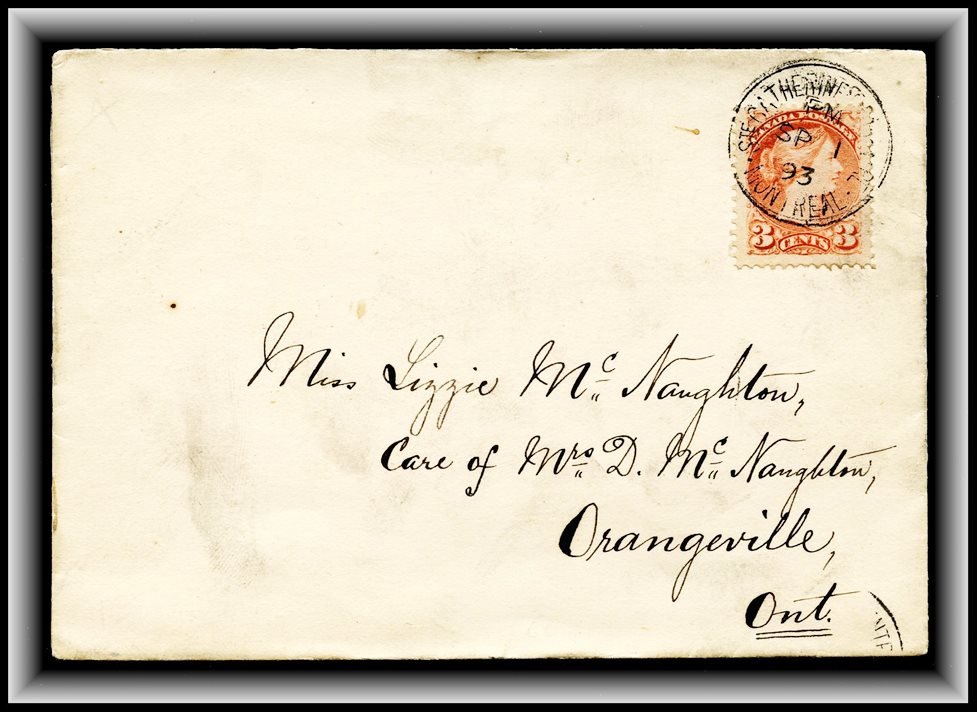 STE CATHERINE ST
PM
SP 1
93
MONTREAL
CANADA POSTAGE
3 CENTS 3
Miss Lizzie Mc Naughton,
Care of Mrs D. Mc Naughton,
Orangeville,
Ont.